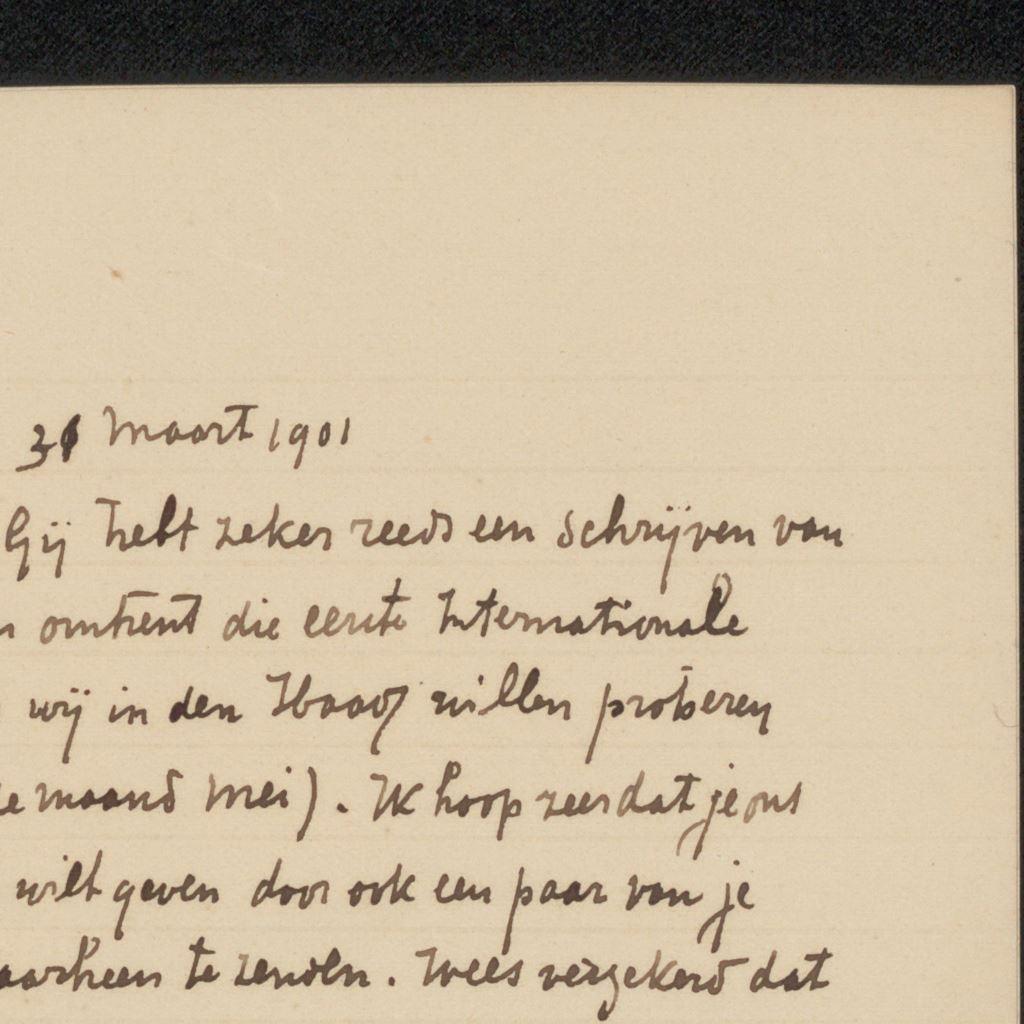 31 Maart 1901
Gij hebt zeker reeds een schrijven van
omtrent die eerste Internationale
wij in den Haag willen proberen
maand Mei). Ik hoop zeer dat je ons
wilt geven door ook een paar van je
te zenden. Wees verzekerd dat